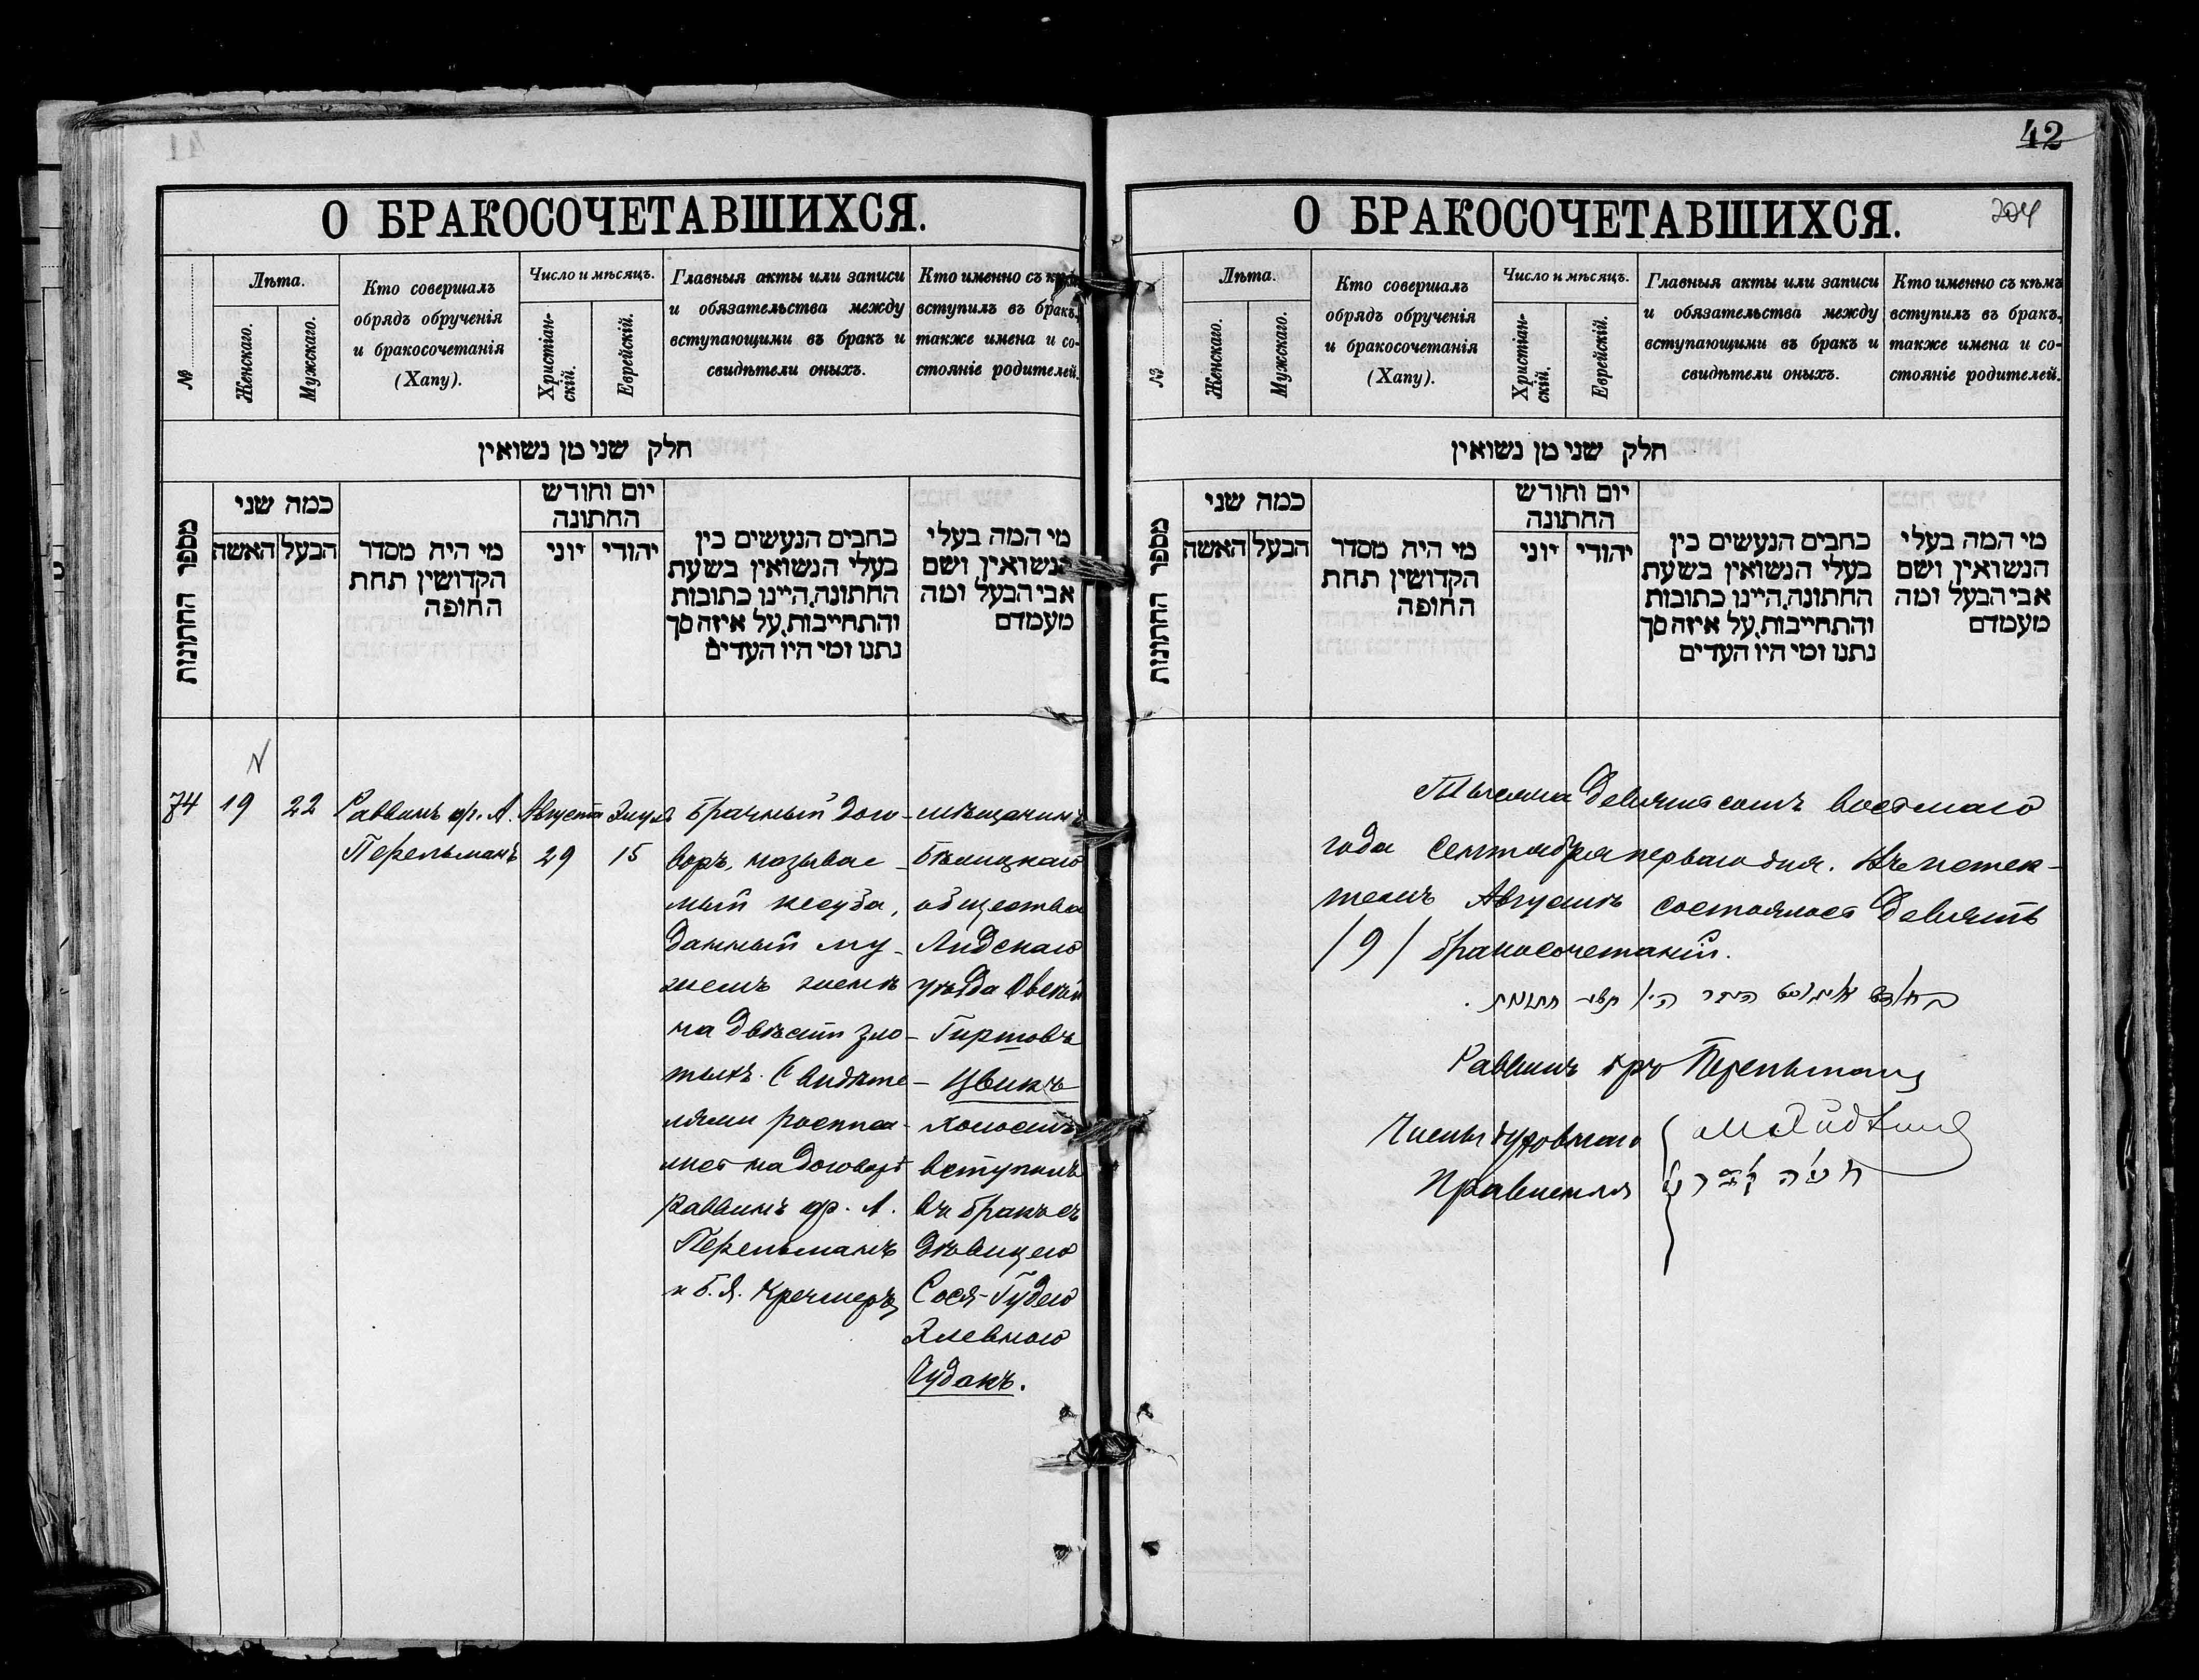 О БРАКОСОЧЕТАВШИХСЯ.
№
Лѣта.
Женскаго.
Мужскаго.
Кто совершалъ
обрядъ обрученія
и бракосочетанія
(Хапу).
Число и мѣсяцъ.
Христіан-
скій.
Еврейскій.
Главныя акты или записи
и обязательства между
вступающими въ бракъ и
свидѣтели оныхъ.
Кто именно съ кѣмъ
вступилъ въ бракъ,
также имена и со-
стояніе родителей.
חלק שני מן נשואין
מספר החתונות
כמה שני
האשה
הבעל
מי היה מסדר
הקדושין תחת
החופה
יום וחודש
החתונה
יוני
יהודי
כתבים הנעשים בין
בעלי הנשואין בשעת
החתונה, היינו כתובות
והתחייבות, על איזה סך
נתנו ומי היו העדים
מי המה בעלי
הנשואין ושם
אבי הבעל ומה
מעמדם
74
19
22
Раввинъ ѳр. А.
Перельманъ
Августа
29
Элулъ
15
Брачный дого-
воръ, называе-
мый кесуба,
данный му-
жемъ женѣ
на двѣсти зло-
тыхъ. Свидѣте-
лями росписа-
лись на договорѣ
Раввинъ ѳр. А.
Перельманъ
и Б. Я. Кречмеръ
мѣщанинъ
Бѣлицкаго
общества
Лидскаго
уѣзда Овсей
Гиршовъ
Цвикъ
холостъ
вступилъ
въ бракъ съ
дѣвицею
Сося-Гудею
Чудакъ.
42
204
О БРАКОСОЧЕТАВШИХСЯ.
№
Лѣта.
Женскаго.
Мужскаго.
Кто совершалъ
обрядъ обрученія
и бракосочетанія
(Хапу).
Число и мѣсяцъ.
Христіан-
скій.
Еврейскій.
Главныя акты или записи
и обязательства между
вступающими въ бракъ и
свидѣтели оныхъ.
Кто именно съ кѣмъ
вступилъ въ бракъ,
также имена и со-
стояніе родителей.
חלק שני מן נשואין
מספר החתונות
כמה שני
האשה
הבעל
מי היה מסדר
הקדושין תחת
החופה
יום וחודש
החתונה
יוני
יהודי
כתבים הנעשים בין
בעלי הנשואין בשעת
החתונה, היינו כתובות
והתחייבות, על איזה סך
נתנו ומי היו העדים
מי המה בעלי
הנשואין ושם
אבי הבעל ומה
מעמדם
Тысяча девятьсотъ восьмаго
года Сентября перваго дня. Въ истек-
шемъ Августѣ состоялось девять
/9/ бракосочетаній.
Раввинъ Перельманъ
Члены духовнаго
Правленія